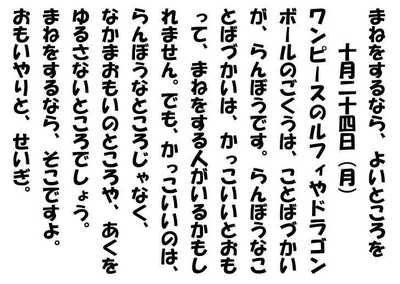 まねをするなら、よいところを
十月二十四日（月）
ワンピースのルフィやドラゴン
ボールのごくうは、ことばづかい
が、らんぼうです。らんぼうなこ
とばづかいは、かっこいいとおも
って、まねをする人がいるかもし
れません。でも、かっこいいのは、
らんぼうなところじゃなく、
なかまおもいのところや、あくを
ゆるさないところでしょう。
まねをするなら、そこですよ。
おもいやりと、せいぎ。